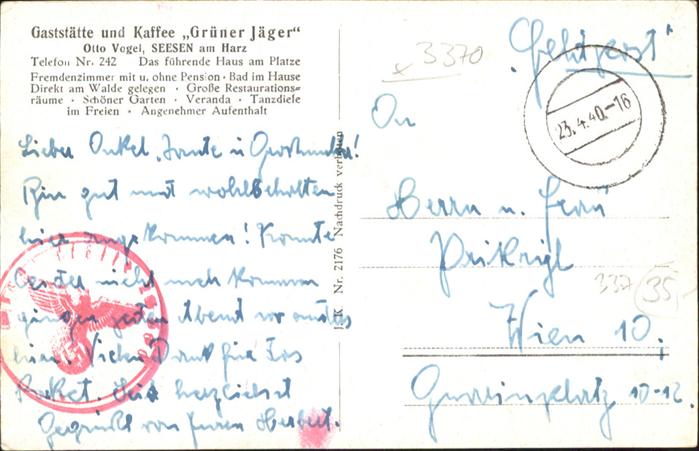 Gaststätte und Kaffee „Grüner Jäger“
Otto Vogel, SEESEN am Harz
Telefon Nr. 242 Das führende Haus am Platze
Fremdenzimmer mit u. ohne Pension · Bad im Hause
Direkt am Walde gelegen · Große Restaurations-
räume · Schöner Garten · Veranda · Tanzdiele
im Freien · Angenehmer Aufenthalt
Lieber Onkel, Tante u.
Bin gut und wohlbehalten
hier angekommen! Konnte
leider nicht mehr kommen
Abend
hier. Vielen Dank für das
Paket. Seid herzlichst
Gegrüßt von Euren Herbert.
Nr. 2176 Nachdruck verboten
3370
„Feldpost“
23.4.40.-16
An
Herrn u. Frau
Prikrigl
337 35,-
Wien 10.
10-12.